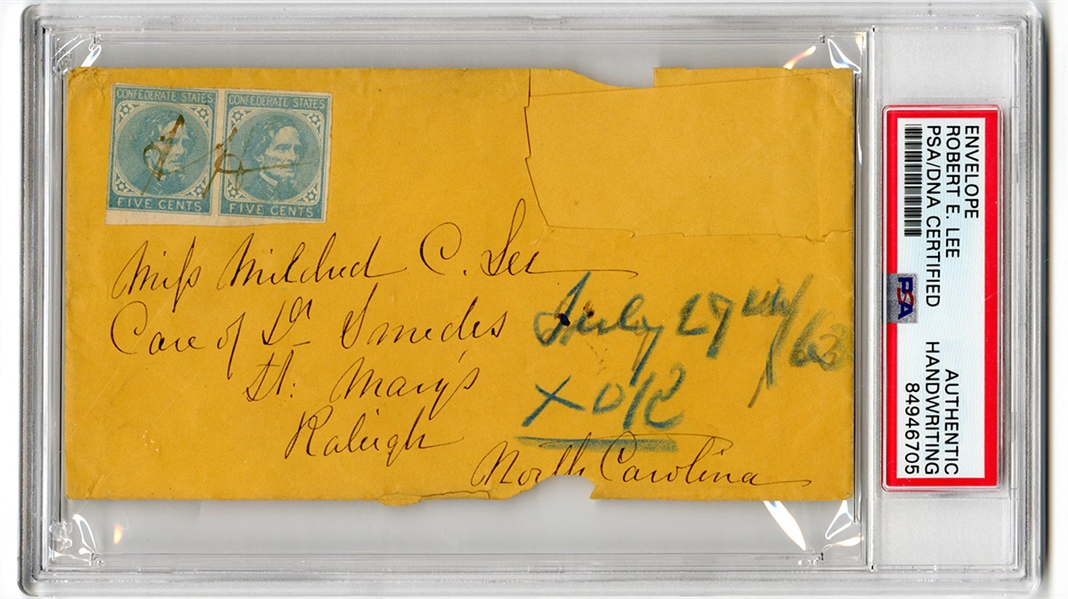 CONFEDERATE STATES
FIVE CENTS
CONFEDERATE STATES
FIVE CENTS
Miss Mildred C. Lee
Care of Dr Smedes
St. Mary's
Raleigh
North Carolina
July 27th/63
X
ENVELOPE
ROBERT E. LEE
PSA/DNA CERTIFIED
AUTHENTIC
HANDWRITING
84946705
PSA